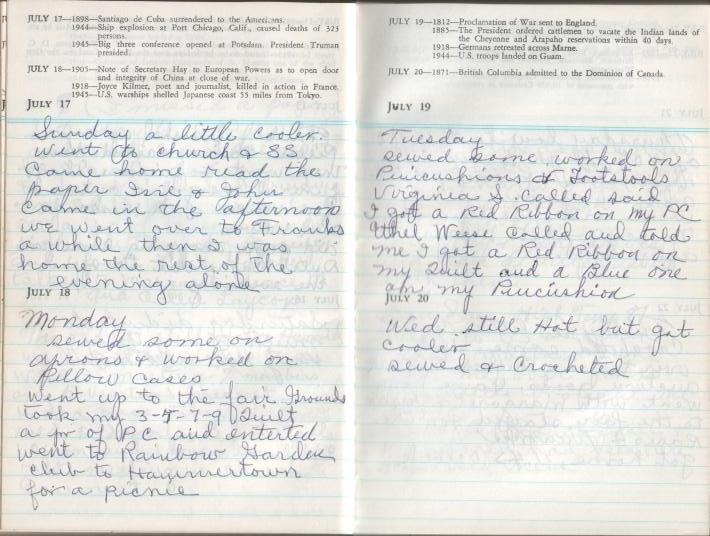 JULY 17—1898—Santiago de Cuba surrendered to the Americans.
1944—Ship explosion at Port Chicago, Calif., caused deaths of 323
persons.
1945—Big three conference opened at Potsdam. President Truman
presided.
JULY 18—1905—Note of Secretary Hay to European Powers as to open door
and integrity of China at close of war.
1918—Joyce Kilmer, poet and journalist, killed in action in France.
1945—U.S. warships shelled Japanese coast 55 miles from Tokyo.
JULY 17
Sunday a little cooler.
went to church & SS
Came home read the
paper Isie & John
came in the afternoon
we went over to Franks
a while then I was
home the rest of the
evening alone
JULY 18
Monday
sewed some on
aprons & worked on
Pillow Cases
went up to the fair Grounds
took my 3-5-7-9 Quilt
a pr of PC and enterted
went to Rainbow Garden
club to Haymertown
for a picnic
JULY 19—1812—Proclamation of War sent to England.
1885—The President ordered cattlemen to vacate the Indian lands of
the Cheyenne and Arapaho reservations within 40 days.
1918—Germans retreated across Marne.
1944—U.S. troops landed on Guam.
JULY 20—1871—British Columbia admitted to the Dominion of Canada.
JULY 19
Tuesday
sewed some worked on
Pincushions & Footstools
Virginia S. called said
I got a Red Ribbon on my PC
Ethel Weese called and told
me I got a Red Ribbon on
my Quilt and a Blue one
on my Pincushion
JULY 20
Wed. still Hot but got
cooler
sewed & Crocheted